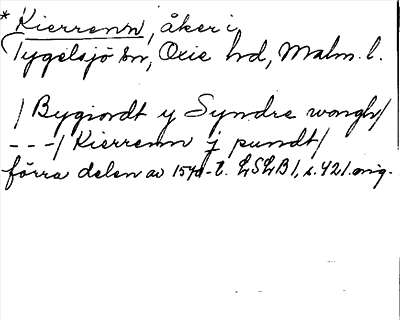 * Kierrenn, åker i
Tygelsjö sn, Oxie hd, Malm. l.
/ Bygiordt y Syndre wongh/
---/ Kierrenn j pundt/
förra delen av 1540-t. LSLB 1, s. 421. orig.